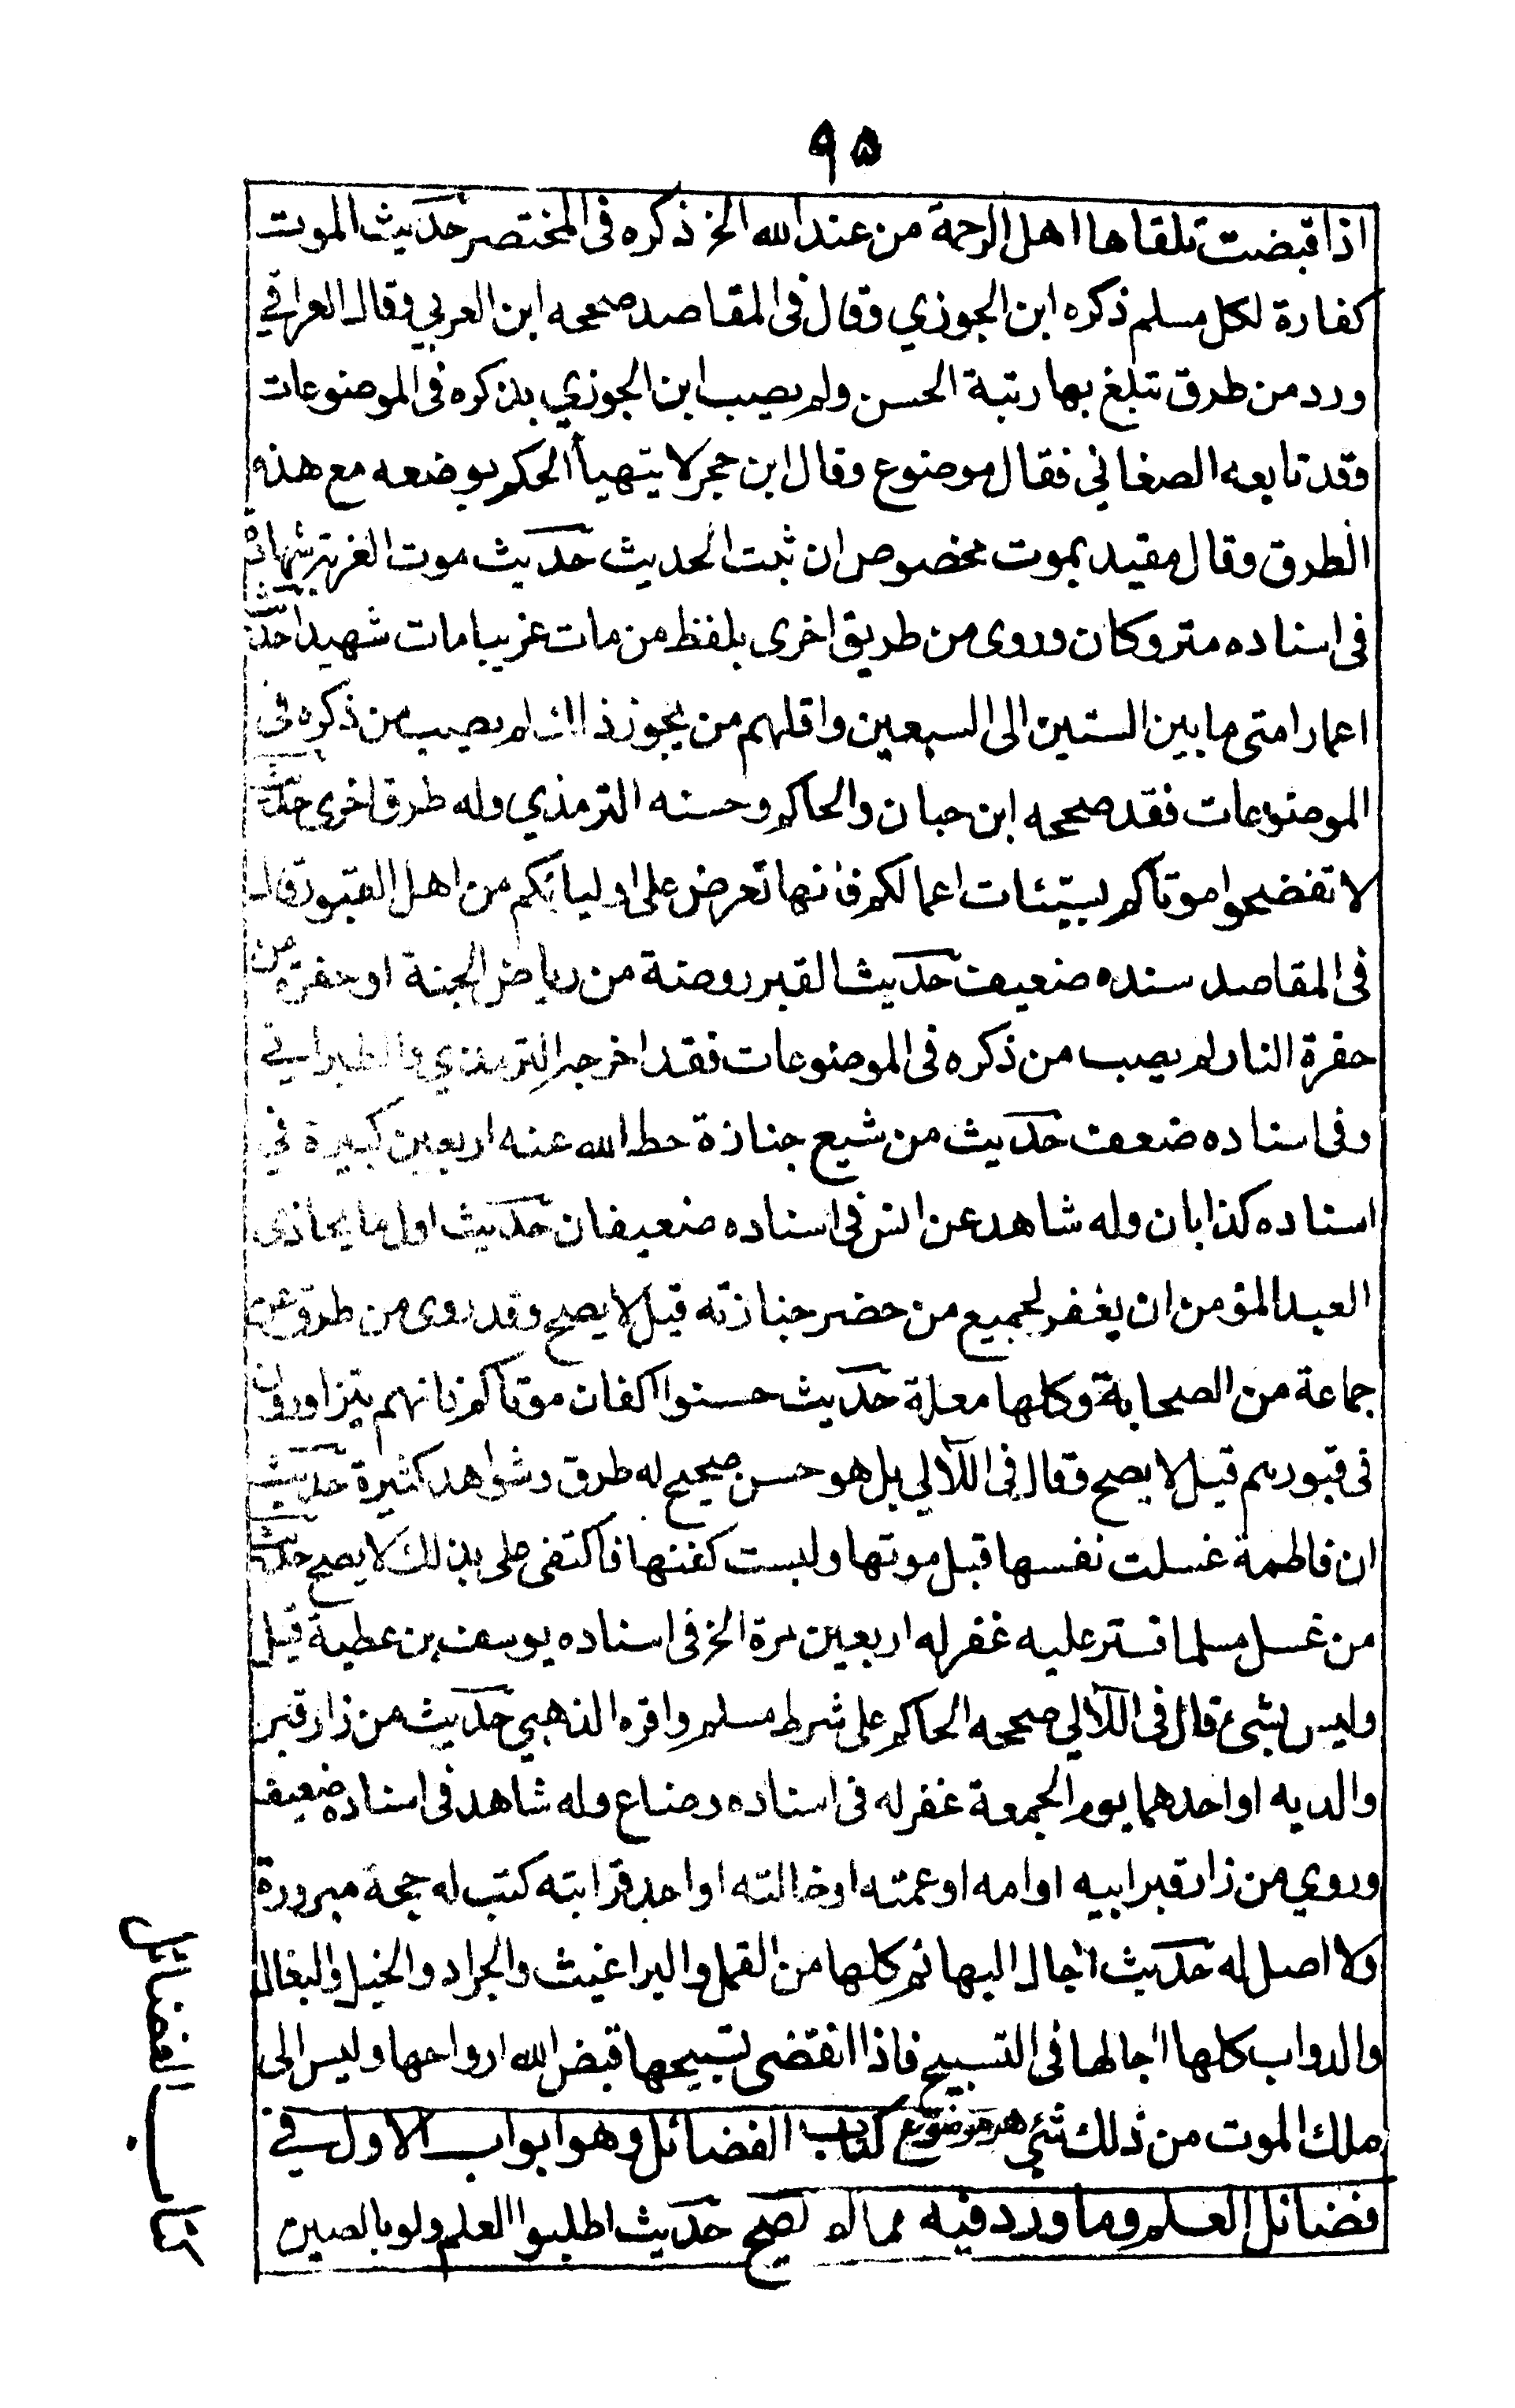 ۹۵
اذا قبضت تلقاها اهل الرحمة من عند الله الخ ذكره فى المختصر حديث الموت
كفارة لكل مسلم ذكره ابن الجوزي وقال فى المقاصد صححه ابن العربي وقال العراقي
ورد من طرق تبلغ بها رتبة الحسن ولم يصب ابن الجوزي بذكره فى الموضوعات
وقد تابعه الصغاني فقال موضوع وقال ابن حجر لا يتهيأ الحكم بوضعه مع هذه
الطرق وقال مقيد بموت مخصوص ان ثبت الحديث حديث موت الغربة شهادة
فى اسناده متروكان وروى من طريق اخرى بلفظ من مات غريبا مات شهيدا حديث
اعمار امتى ما بين الستين الى السبعين واقلهم من يجوز ذالك لم يصب من ذكره فى
الموضوعات فقد صححه ابن حبان والحاكم وحسنه الترمذي وله طرق اخرى حديث
لا تفضحوا موتاكم بسيئات اعمالكم فانها تعرض على اوليائكم من اهل القبور قال
فى المقاصد سنده ضعيف حديث القبر روضة من رياض الجنة او حفرة من
حفرة النار لم يصب من ذكره فى الموضوعات فقد اخرجه الترمذي والطبراني
وفى اسناده ضعف حديث من شيع جنازة حط الله عنه اربعين كبيرة في
اسناده كذابان وله شاهد عن انس فى اسناده ضعيفان حديث اول ما يجازى
العبد المؤمن ان يغفر لجميع من حضر جنازته قيل لا يصح وقد روى من طرق عن
جماعة من الصحابة وكلها معلة حديث حسنوا اكفان موتاكم فانهم يتزاورون
فى قبورهم قيل لا يصح وقال فى اللآلي بل هو حسن صحيح له طرق وشواهد كثيرة حديث
ان فاطمة غسلت نفسها قبل موتها ولبست كفنها فاكتفى على بذلك لا يصح حديث
من غسل مسلما فستر عليه غفر له اربعين مرة الخ فى اسناده يوسف بن عطية قيل
وليس بشئ قال فى اللآلي صححه الحاكم على شرط مسلم واقره الذهبي حديث من زار قبر
والديه او احدهما يوم الجمعة غفر له فى اسناده وضاع وله شاهد فى اسناده ضعيف
وروي من زار قبر ابيه او امه او عمته او خالته او احد قرابته كتب له حجة مبرورة
ولا اصل له حديث اجال البهائم كلها من القمل والبراغيث والجراد والخيل والبغال
والدواب كلها اجالها فى التسبيح فاذا انقضى تسبيحها قبض الله ارواحها وليس الى
ملك الموت من ذلك شئي هو موضوع كتاب الفضائل وهو ابواب الاول في
فضائل العلم وما ورد فيه مما لم تصح حديث اطلبوا العلم ولو بالصين
كتاب الفضائل